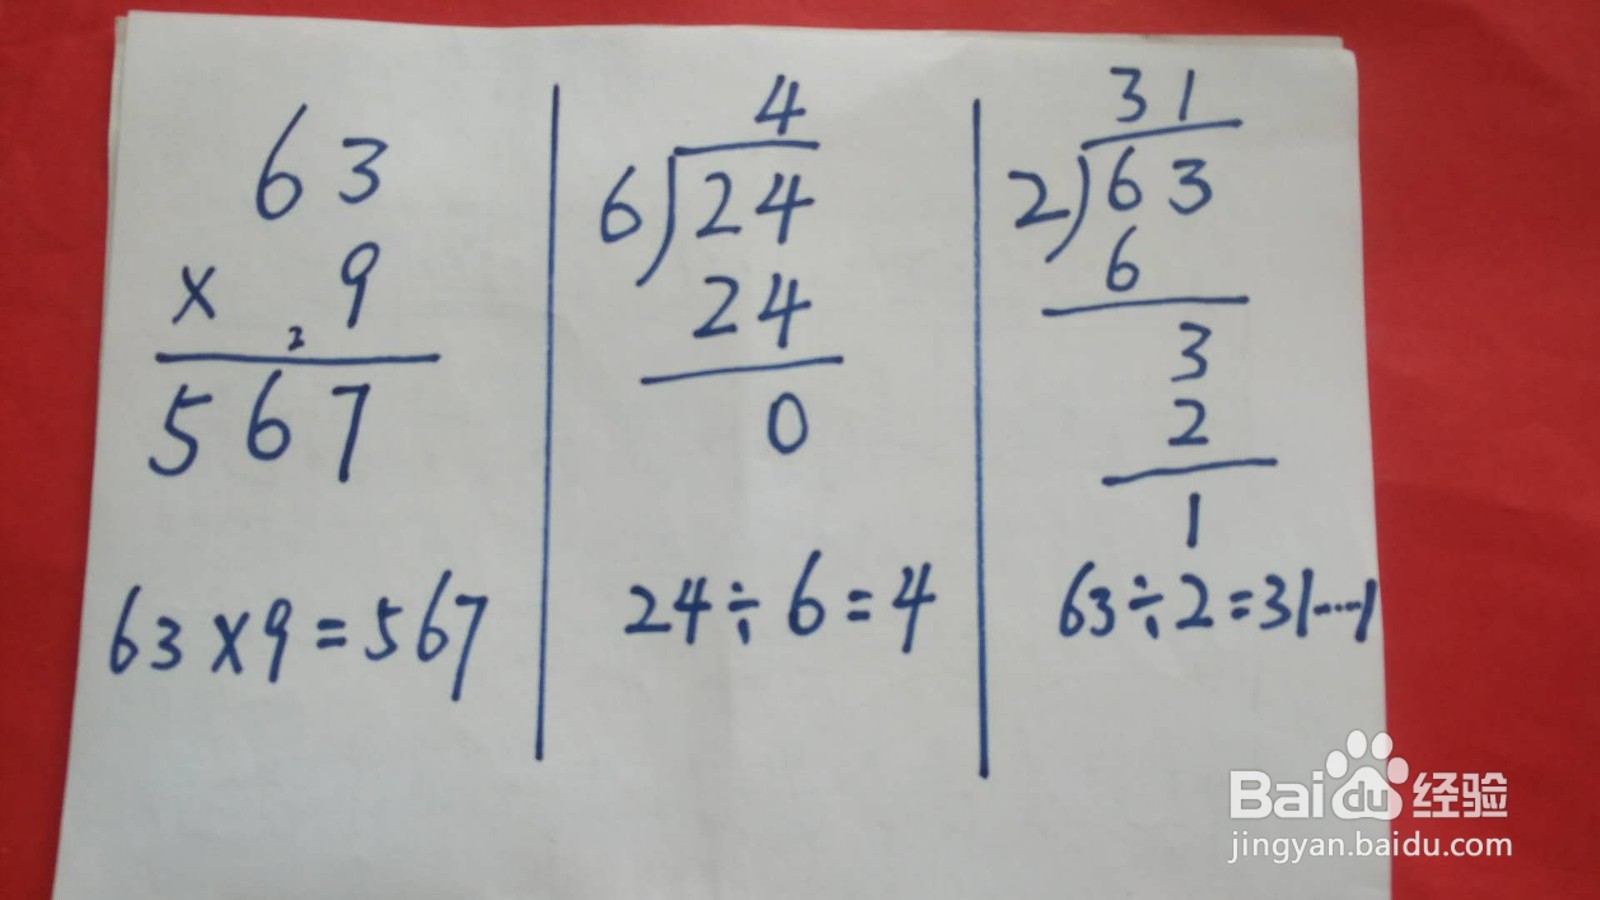 63
× 9
2
567
63×9=567
4
6)24
24
0
24÷6=4
31
2)63
6
3
2
1
63÷2=31····1
Baidu 经验
jingyan.baidu.com